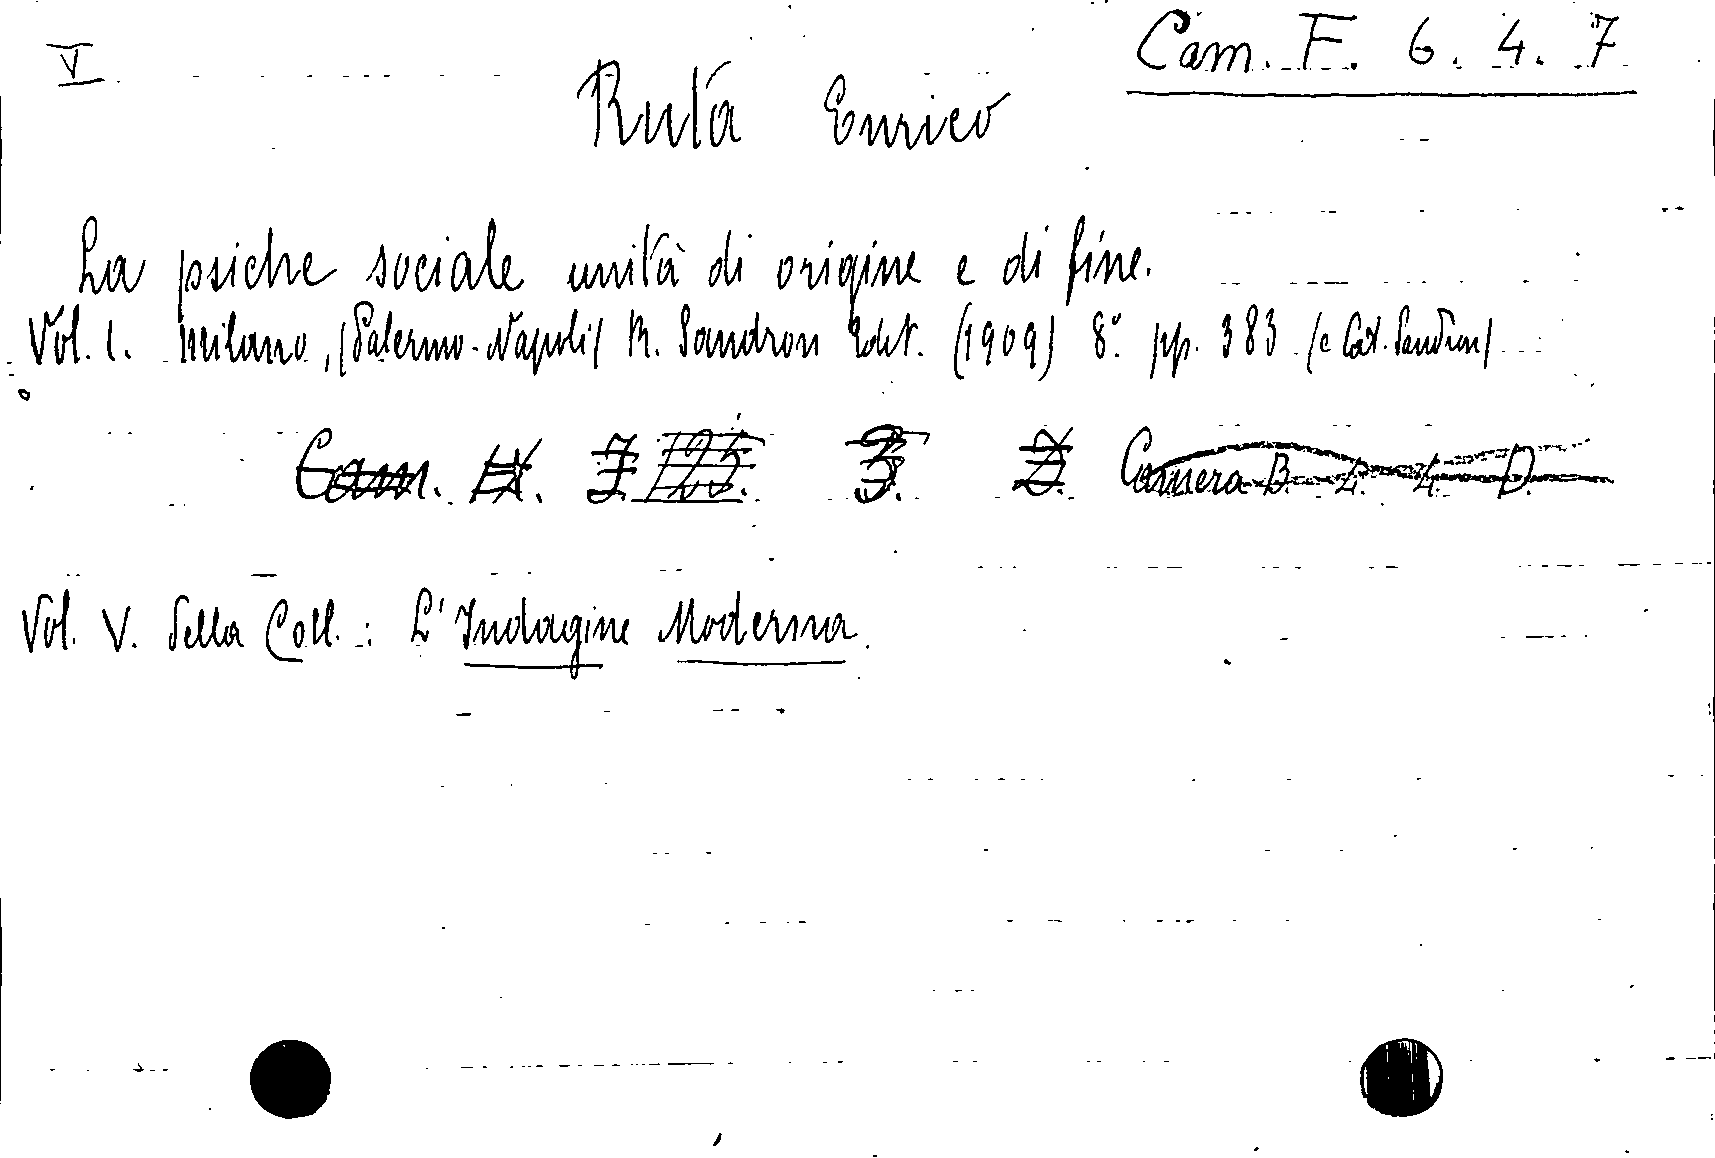 V
Cam. F. 6. 4. 7
Ruta Enrico
La psiche sociale unità di origine e di fine.
Vol. I. Milano, (Palermo-Napoli) R. Sandron Edit. (1909) 8.° pp. 383 (e Cat. Sandron)
Cam. 3. 2. Camera B. 4. 4. D.
Vol. V. della Coll.: L'Indagine Moderna.